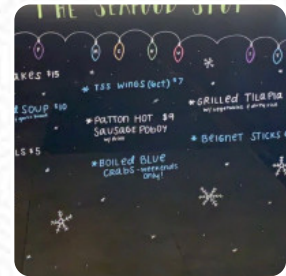 THE SEAFOOD SPOT
akes $15
SOUP $10
LS $5
* TSS WINGS (6ct) $7
* PATTON HOT $9
SAUSAGE POBOY
w/ fries
* BOILED BLUE
CRABS - weekends
only!
* GRILLED TILAPIA
* BEIGNET STICKS